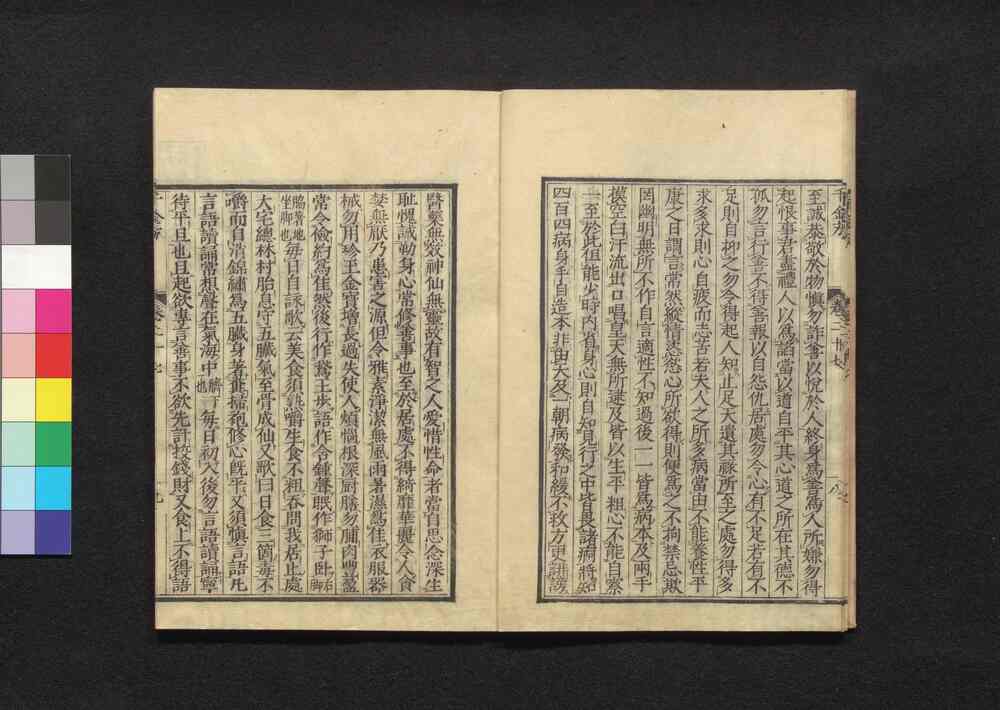 千金方
卷二十七
八
至誠恭敬於物慎勿詐善以悅於人終身爲善爲人所嫌勿得
起恨事君盡禮人以爲諂當以道自平其心道之所在其德不
孤勿言行善不得善報以自怨仇居處勿令心有不足若有不
足則自抑之勿令得起人知止足天遺其祿所至之處勿得多
求多求則心自疲而志苦若夫人之所以多病當由不能養性平
康之日謂言常然縱情恣慾心所欲得則便爲之不拘禁忌欺
罔幽明無所不作自言適性不知過後一一皆爲病本及兩手
摸空白汗流出口唱皇天無所逮及皆以生平粗心不能自察
一至於此但能少時內省身心則自知見行之中皆長諸痾將知
四百四病身手自造本非由天及一朝病發和緩不救方更誹謗
醫藥無效神仙無靈故有智之人愛惜性命者當自思念深生
恥愧誡勒身心常修善事也至於居處不得綺靡華麗令人貪
婪無厭乃患害之源但令雅素淨潔無風雨暑濕爲佳衣服器
械勿用珍玉金寶增長過失使人煩惱根深厨膳勿脯肉豐盈
常令儉約爲佳然後行作鵞王步語作含鍾聲眠作獅子臥右脚
脇著地坐脚也每日自詠歌云美食須熟嚼生食不粗吞問我居止處
大宅總林村胎息守五臟氣至骨成仙又歌曰日食三箇毒不
嚼而自消錦繡爲五臟身著糞掃袍修心既平又須慎言語凡
言語讀誦常想聲在氣海中臍下也每日初入後勿言語讀誦寧
待平旦也旦起欲專言善事不欲先計挍錢財又食上不得語
千金方
卷二十七
九